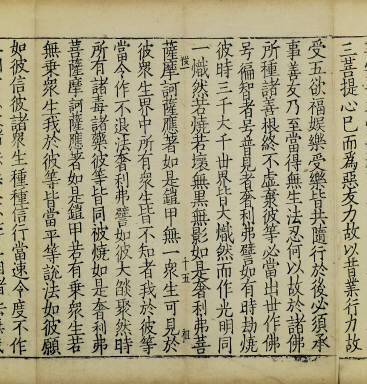 三菩提心已而為惡友力故以昔業行力故
受五欲福娛樂受樂皆共隨行於後必須承
事善友乃至當得無生法忍何以故於諸佛
所種諸善根終不虛棄彼等必當出世作佛
号徧智者号普見者奢利弗譬如有時劫燒
彼時三千大千世界皆大熾然而作光明同
一熾然若燒若壞無黑無影如是奢利弗菩
十五
薩摩訶薩應著如是鎧甲無一衆生可見於
彼衆生界中所有衆生皆不知者我於彼等
當令作不退法奢利弗譬如彼大燄聚然時
所有諸毒諸藥彼等皆同被燒如是奢利弗
菩薩摩訶薩應著如是鎧甲若有乗衆生若
無乗衆生我於彼等皆當平等說法如彼願
如彼信彼諸衆生種種信行當速令度不作